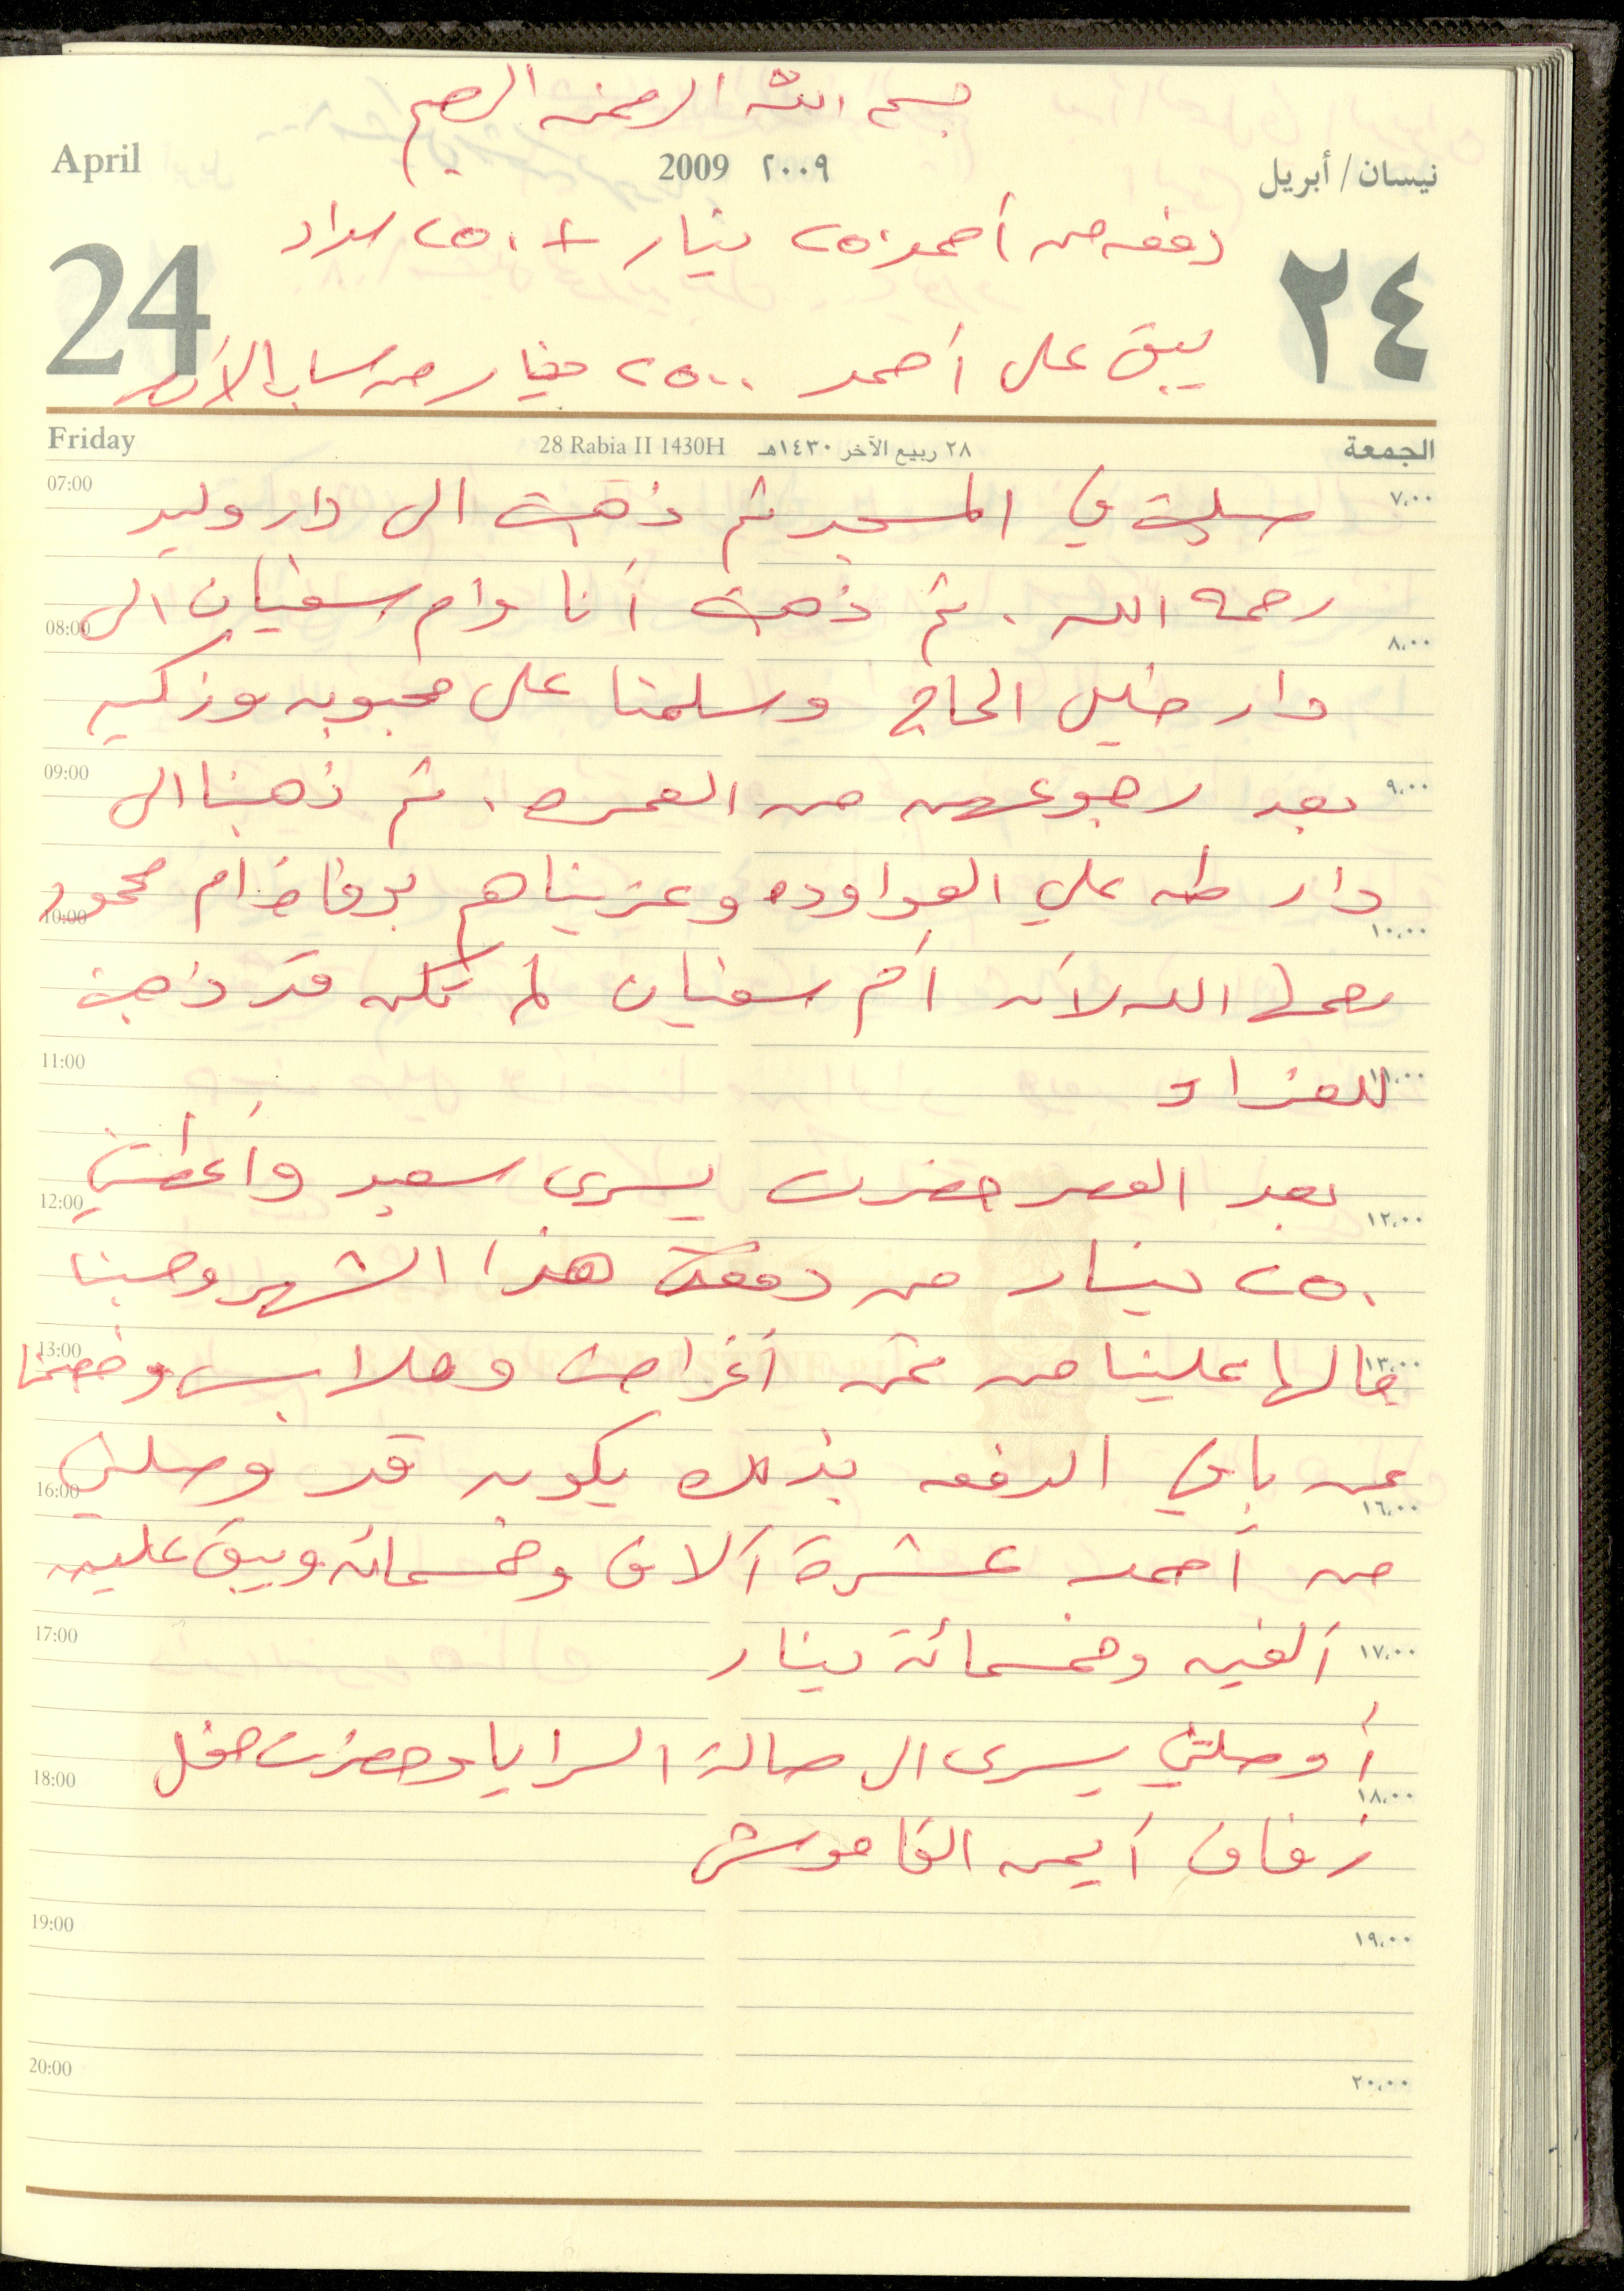 بسم الله الرحمن الرحيم
April 2009 ٢٠٠٩ نيسان/أبريل
دفعه من أحمد ٢٥٠ دينار + ٢٥٠ سداد
24 ٢٤
يبقى على أحمد ٢٥٠٠ دينار من حساب الأرض
Friday 28 Rabia II 1430H ٢٨ ربيع الآخر ١٤٣٠هـ الجمعة
07:00 ٧،٠٠
صليت في المسجد ثم ذهبت الى دار وليد
رحمه الله . ثم ذهبت أنا وام سفيان الى
08:00 ٨،٠٠
دار خليل الحاج وسلمنا على محبوبه وزكيه
09:00 ٩،٠٠
بعد رجوعهن من العمره . ثم ذهبنا الى
دار طه علي العواوده وعزيناهم بوفاة ام محمود
10:00 ١٠،٠٠
رحمها الله لأن أم سفيان لم تكن قد ذهبت
11:00 ١١،٠٠
للعزاء
بعد العصر حضرت يسرى سعيد وأعطتني
12:00 ١٢،٠٠
٢٥٠ دينار من دفعة هذا الشهر وحسبنا
13:00 ١٣،٠٠
مالها علينا من ثمن أغراض وملابس وخصمنا
عن باقي الدفعه بذلك يكون قد وصلني
16:00 ١٦،٠٠
من أحمد عشرة آلاف وخمسمائه ويبقى عليه
17:00 ١٧،٠٠
ألفين وخمسمائة دينار
أوصلتني يسرى الى صالة السرايا وحضرت حفل
18:00 ١٨،٠٠
زفاف أيمن القاموش
19:00 ١٩،٠٠
20:00 ٢٠،٠٠